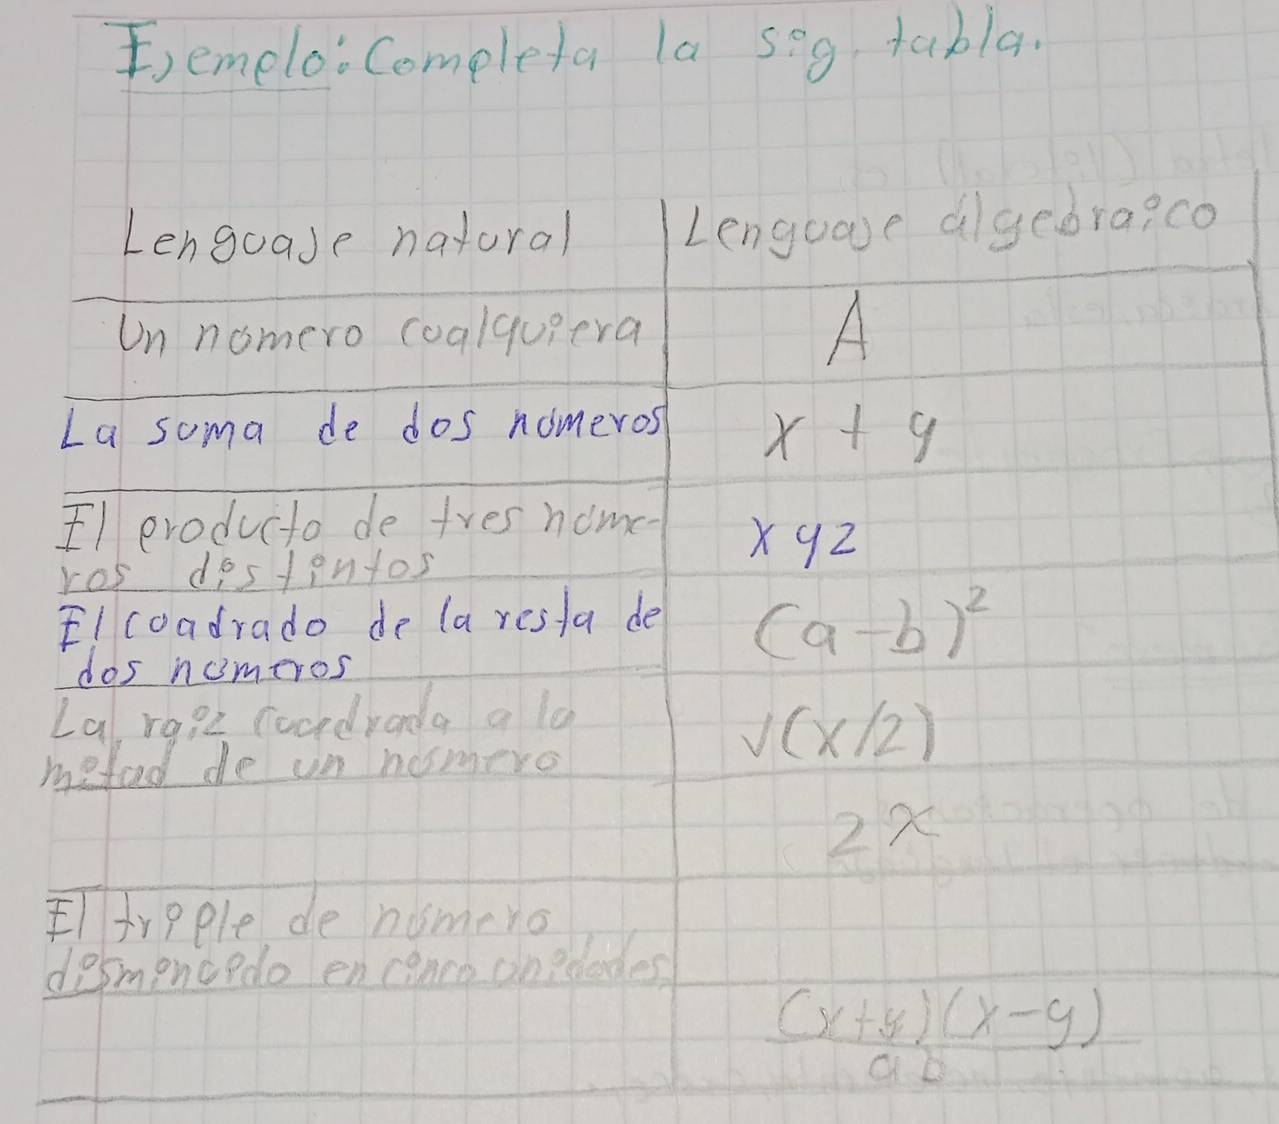 Ejemplo: Completa la sig. tabla.
Lenguaje natural Lenguaje algebraico
Un número cualquiera A
La suma de dos números x + y
El producto de tres núme- xyz
ros distintos
El cuadrado de la resta de (a-b)²
dos números
La raíz cuadrada a la √(x/2)
mitad de un número
2x
El triple de número
disminuido en cinco unidades
(x+y)(x-y)
ab